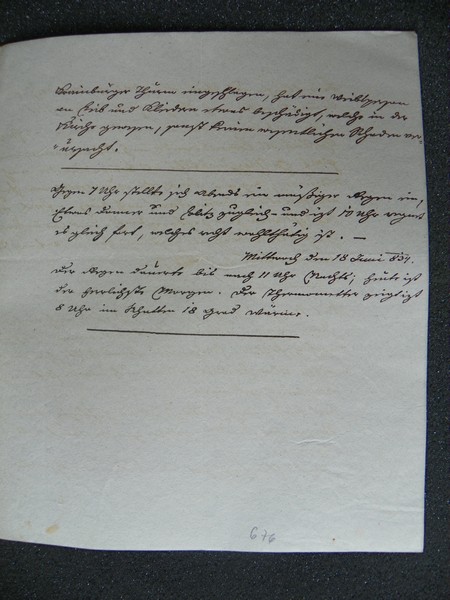 Krainburger Thurm eingeschlagen, hat eine Weibsperson
an Leib und Kleidern etwas beschädigt, welche in der
Kirche gewesen, sonst keinen wesentlichen Schaden ver-
ursacht.
Gegen 7 Uhr stellte sich Abends ein mäßiger Regen ein,
Etwas Donner und Blitz zugleich - und ist 10 Uhr regnet
es gleich fort, welches recht wohlthätig ist. —
Mittwoch den 18 Juni 834.
Der Regen dauerte bis nach 11 Uhr Nachts; heute ist
der herrlichste Morgen. Der Thermometter zeigt ist
8 Uhr im Schatten 18 grad Wärme.
676